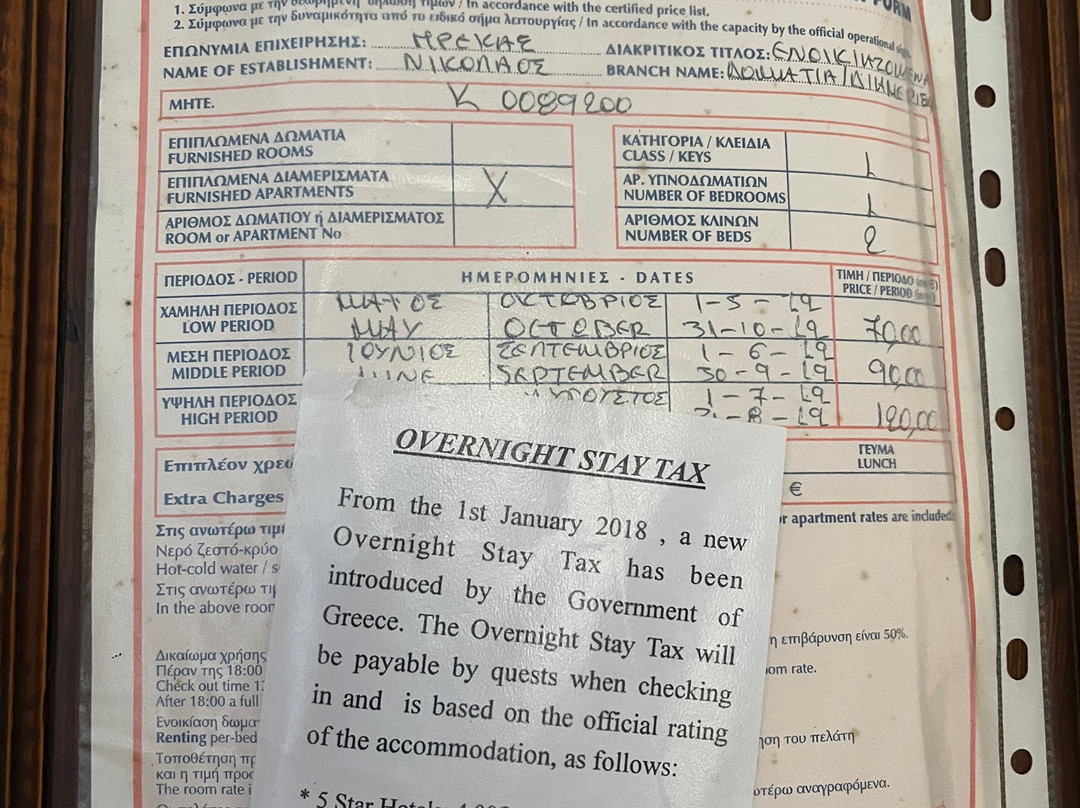 FORM
1. Σύμφωνα με την θεωρημένη δήλωση τιμών / In accordance with the certified price list.
2. Σύμφωνα με την δυναμικότητα από το ειδικό σήμα λειτουργίας / In accordance with the capacity by the official operational sign
ΕΠΩΝΥΜΙΑ ΕΠΙΧΕΙΡΗΣΗΣ: ΜΡΕΚΑΣ ΔΙΑΚΡΙΤΙΚΟΣ ΤΙΤΛΟΣ: ΕΝΟΙΚΙΑΖΟΜΕΝΑ
NAME OF ESTABLISHMENT: ΝΙΚΟΛΑΟΣ BRANCH NAME: ΔΩΜΑΤΙΑ/ΔΙΑΜΕΡΙΣ
ΜΗΤΕ. Κ 0089200
ΕΠΙΠΛΩΜΕΝΑ ΔΩΜΑΤΙΑ
FURNISHED ROOMS
ΕΠΙΠΛΩΜΕΝΑ ΔΙΑΜΕΡΙΣΜΑΤΑ
FURNISHED APARTMENTS X
ΑΡΙΘΜΟΣ ΔΩΜΑΤΙΟΥ ή ΔΙΑΜΕΡΙΣΜΑΤΟΣ
ROOM or APARTMENT No
ΚΑΤΗΓΟΡΙΑ / ΚΛΕΙΔΙΑ
CLASS / KEYS 1
ΑΡ. ΥΠΝΟΔΩΜΑΤΙΩΝ
NUMBER OF BEDROOMS 1
ΑΡΙΘΜΟΣ ΚΛΙΝΩΝ
NUMBER OF BEDS 2
ΠΕΡΙΟΔΟΣ - PERIOD ΗΜΕΡΟΜΗΝΙΕΣ - DATES ΤΙΜΗ / ΠΕΡΙΟΔΟ
PRICE / PERIOD
ΧΑΜΗΛΗ ΠΕΡΙΟΔΟΣ ΜΑΪΟΣ ΟΚΤΩΒΡΙΟΣ 1-5-19
LOW PERIOD MAY OCTOBER 31-10-19 70,00
ΜΕΣΗ ΠΕΡΙΟΔΟΣ ΙΟΥΝΙΟΣ ΣΕΠΤΕΜΒΡΙΟΣ 1-6-19
MIDDLE PERIOD JUNE SEPTEMBER 30-9-19 90,00
ΥΨΗΛΗ ΠΕΡΙΟΔΟΣ ΥΓΟΥΣΤΟΣ 1-7-19
HIGH PERIOD -8-19 120,00
Επιπλέον χρε ΓΕΥΜΑ
LUNCH
Extra Charges €
Στις ανωτέρω τιμ r apartment rates are included:
Νερό ζεστό-κρύο
Hot-cold water / s
Στις ανωτέρω τι
In the above roor
η επιβάρυνση είναι 50%.
om rate.
Δικαίωμα χρήσης
Πέραν της 18:00
Check out time 1
After 18:00 a full
Ενοικίαση δωμα
Renting per-bed
ηση του πελάτη
Τοποθέτηση πρ
και η τιμή προσ
The room rate i
ωτέρω αναγραφόμενα.
OVERNIGHT STAY TAX
From the 1st January 2018 , a new
Overnight Stay Tax has been
introduced by the Government of
Greece. The Overnight Stay Tax will
be payable by quests when checking
in and is based on the official rating
of the accommodation, as follows:
* 5 Star Hotels